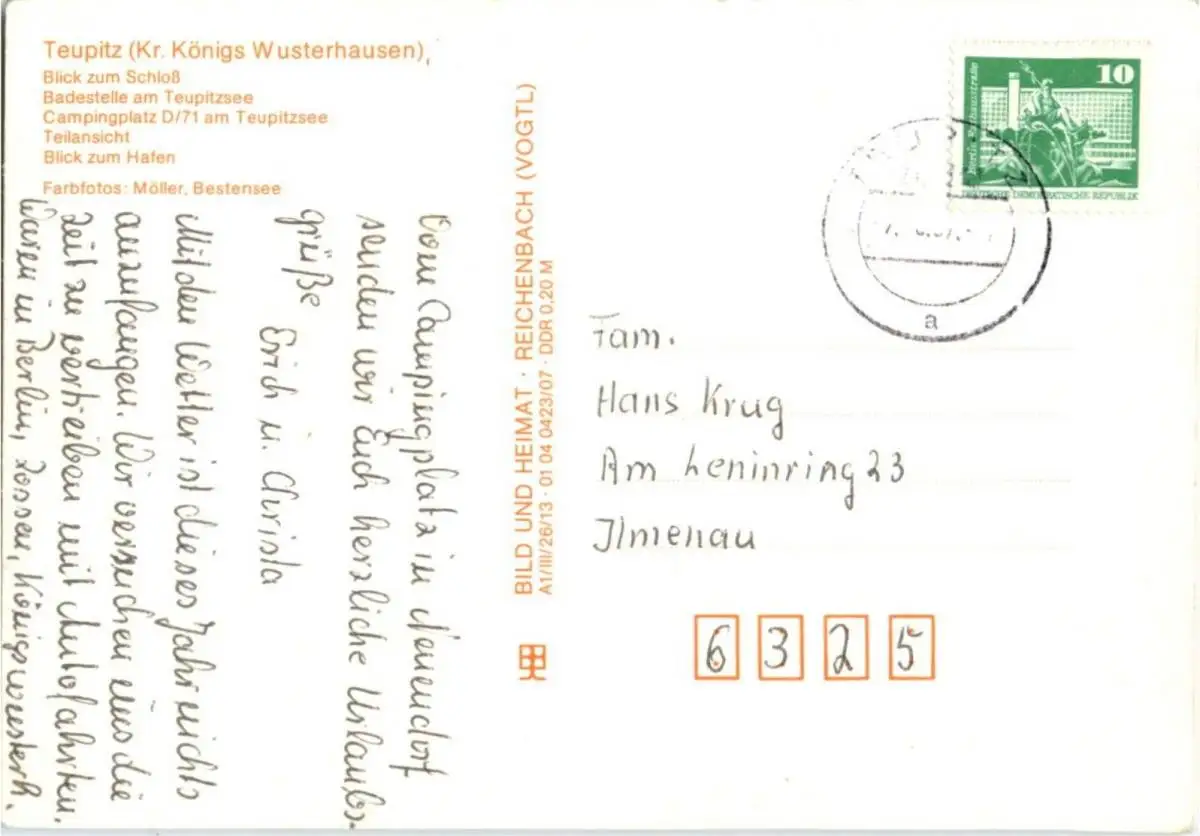 Teupitz (Kr. Königs Wusterhausen),
Blick zum Schloß
Badestelle am Teupitzsee
Campingplatz D/71 am Teupitzsee
Teilansicht
Blick zum Hafen
Farbfotos: Möller, Bestensee
Vom Campingplatz in Neuendorf
senden wir Euch herzliche Urlaubs-
grüße
Erich u. Christa
Mit dem Wetter ist dieses Jahr nichts
anzufangen. Wir versuchen uns die
Zeit zu vertreiben mit Autofahrten.
Waren in Berlin, Zossen, Königswusterh.
BILD UND HEIMAT · REICHENBACH (VOGTL)
A1/III/26/13 · 01 04 0423/07 · DDR 0,20 M
10
Berlin, Rathausstraße
DEUTSCHE DEMOKRATISCHE REPUBLIK
a
Fam.
Hans Krug
Am Leninring 23
Ilmenau
6 3 2 5